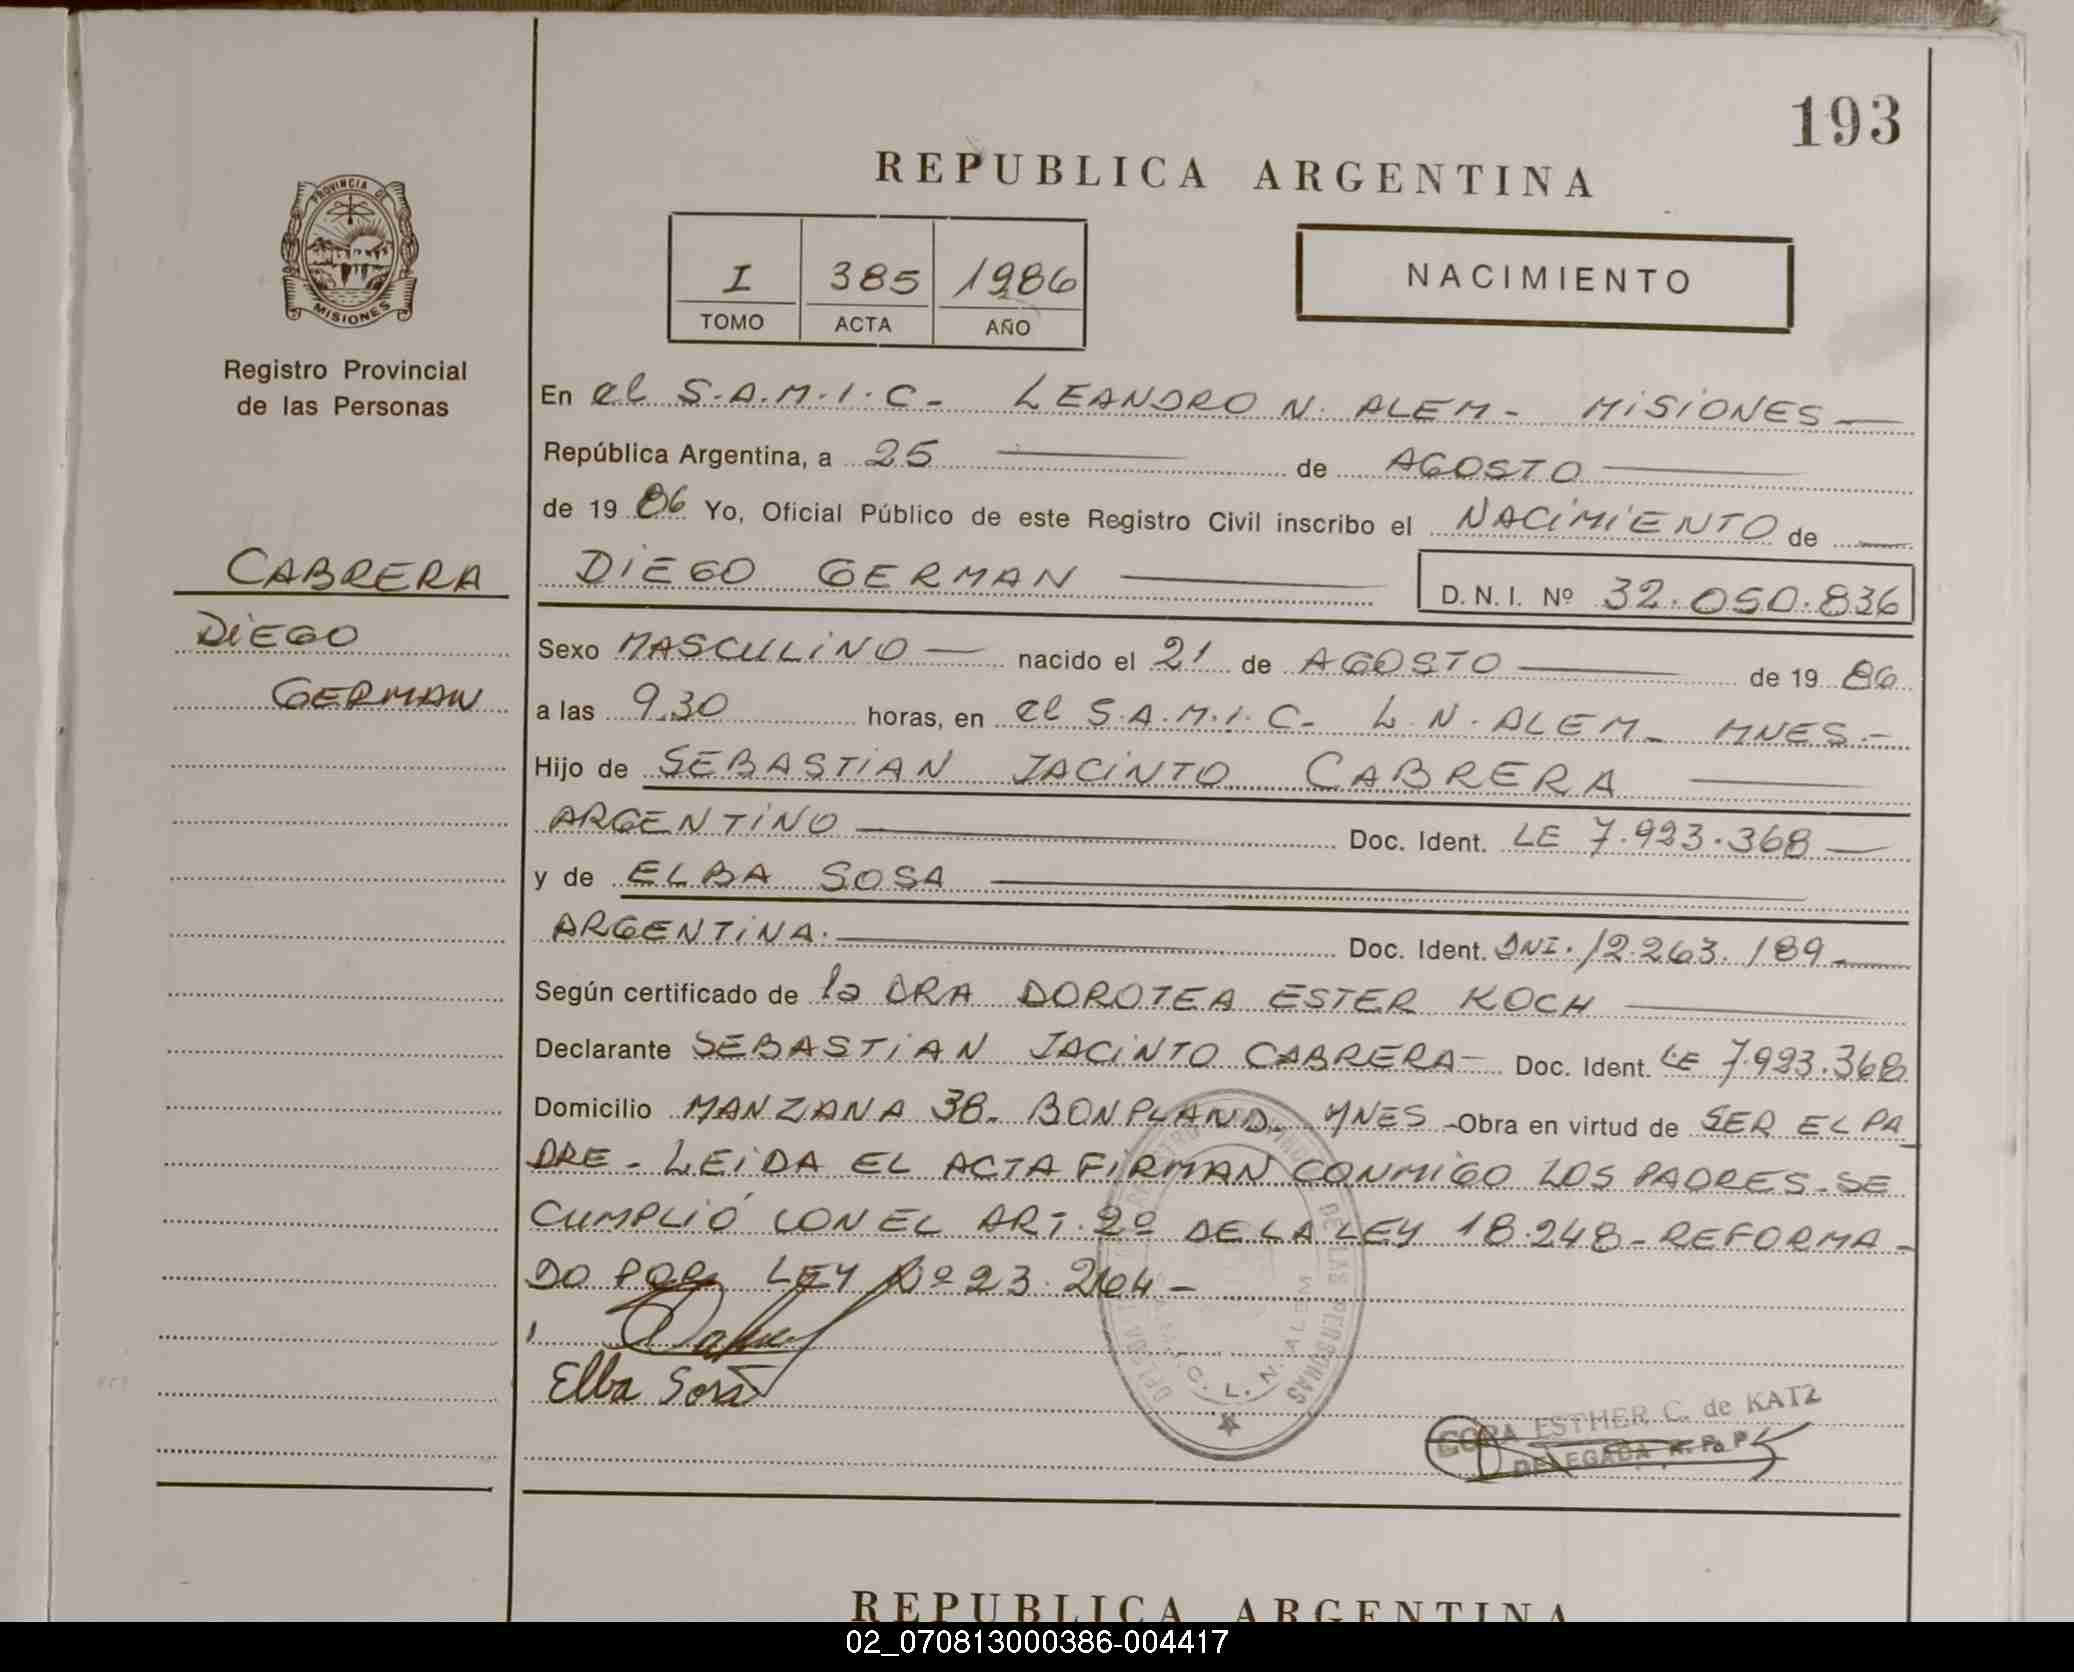 193
REPUBLICA ARGENTINA
PROVINCIA DE
MISIONES
I 385 1986
TOMO ACTA AÑO
NACIMIENTO
Registro Provincial
de las Personas
En el S.A.M.I.C- LEANDRO N. ALEM- MISIONES
República Argentina, a 25 de AGOSTO
de 19 86 Yo, Oficial Público de este Registro Civil inscribo el NACIMIENTO de
CABRERA
DIEGO GERMAN
D.N.I. Nº 32.050.836
DIEGO
GERMAN
Sexo MASCULINO nacido el 21 de AGOSTO de 19 86
a las 9.30 horas, en el S.A.M.I.C- L.N. ALEM- MNES.-
Hijo de SEBASTIAN JACINTO CABRERA
ARGENTINO Doc. Ident. LE 7.923.368
y de ELBA SOSA
ARGENTINA. Doc. Ident. DNI. 12.263.189
Según certificado de la DRA DOROTEA ESTER KOCH
Declarante SEBASTIAN JACINTO CABRERA- Doc. Ident. LE 7.923.368
Domicilio MANZANA 38. BONPLAND. MNES - Obra en virtud de SER EL PA_
DRE - LEIDA EL ACTA FIRMAN CONMIGO LOS PADRES-SE
CUMPLIÓ CON EL ART. 2º DE LA LEY 18.248-REFORMA-
DO POR LEY Nº 23.264-
Elba Sosa
DE LAS PERSONAS
L. N. ALEM
CORA ESTHER C. de KATZ
DELEGADA R. P. P.
REPUBLICA ARGENTINA
02_070813000386-004417